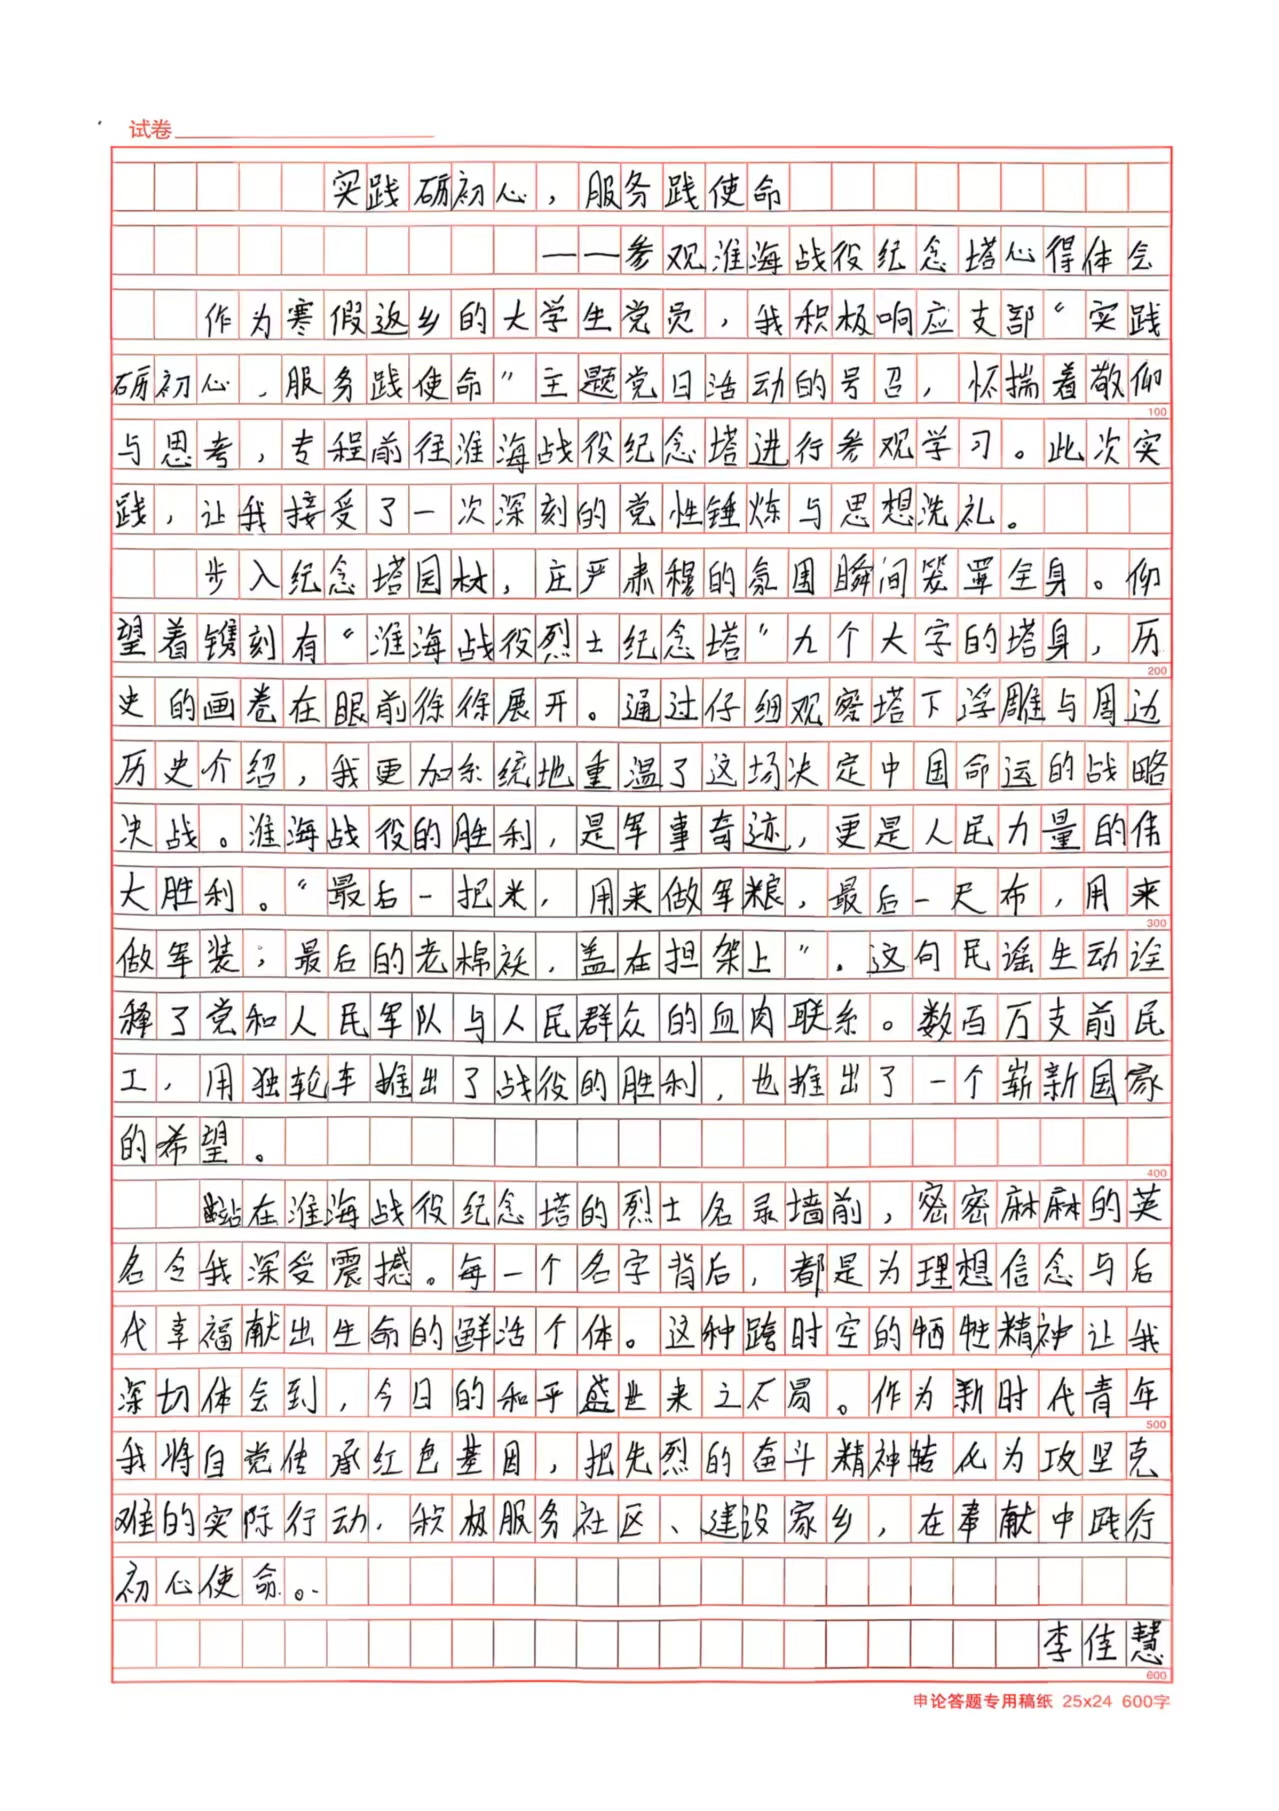 试卷
实践砺初心，服务践使命
——参观淮海战役纪念塔心得体会
作为寒假返乡的大学生党员，我积极响应支部“实践
砺初心、服务践使命”主题党日活动的号召，怀揣着敬仰
与思考，专程前往淮海战役纪念塔进行参观学习。此次实
践，让我接受了一次深刻的党性锤炼与思想洗礼。
步入纪念塔园林，庄严肃穆的氛围瞬间笼罩全身。仰
望着镌刻有“淮海战役烈士纪念塔”九个大字的塔身，历
史的画卷在眼前徐徐展开。通过仔细观察塔下浮雕与周边
历史介绍，我更加系统地重温了这场决定中国命运的战略
决战。淮海战役的胜利，是军事奇迹，更是人民力量的伟
大胜利。“最后一把米，用来做军粮，最后一尺布，用来
做军装；最后的老棉袄，盖在担架上”，这句民谣生动诠
释了党和人民军队与人民群众的血肉联系。数百万支前民
工，用独轮车推出了战役的胜利，也推出了一个崭新国家
的希望。
站在淮海战役纪念塔的烈士名录墙前，密密麻麻的英
名令我深受震撼。每一个名字背后，都是为理想信念与后
代幸福献出生命的鲜活个体。这种跨时空的牺牲精神让我
深切体会到，今日的和平盛世来之不易。作为新时代青年
我将自觉传承红色基因，把先烈的奋斗精神转化为攻坚克
难的实际行动，积极服务社区、建设家乡，在奉献中践行
初心使命。
李佳慧
100
200
300
400
500
600
申论答题专用稿纸 25x24 600字